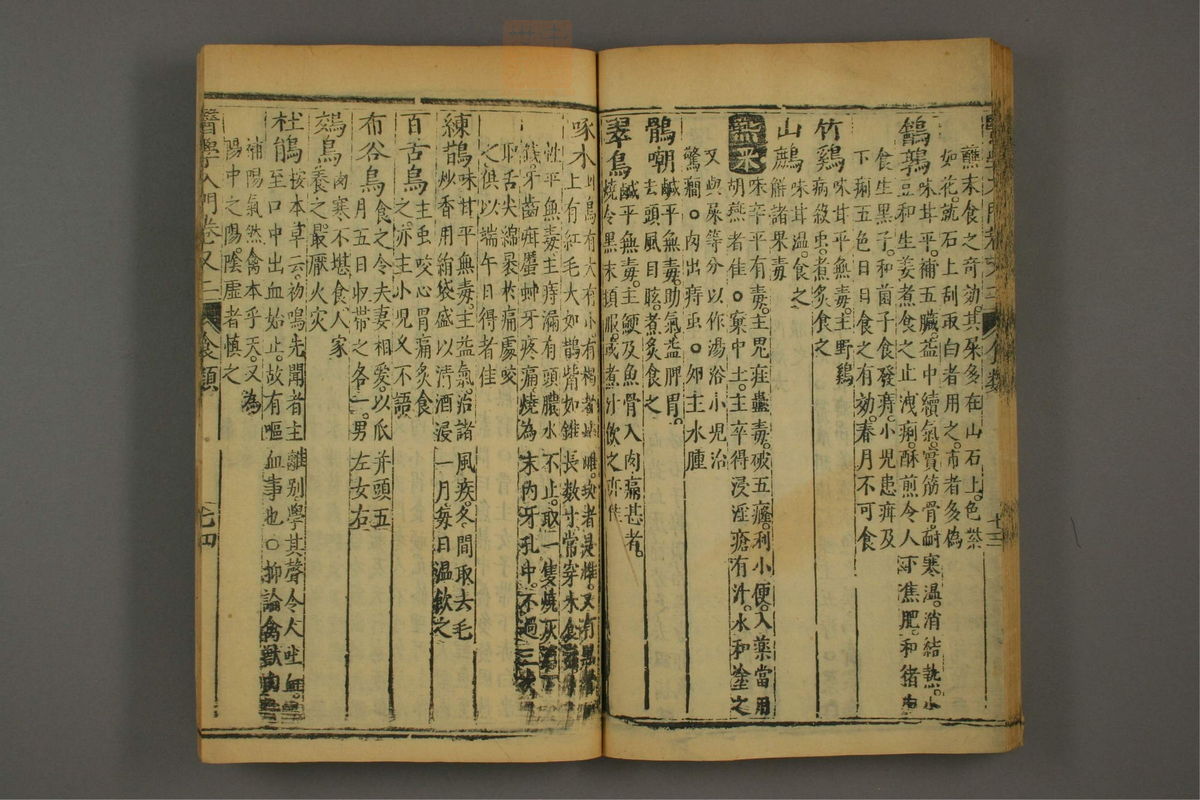 蘸末食之奇効其屎多在山石上色紫
如花就石上刮取白者用之市者多偽
鵪鶉味甘平補五臟益中續氣實筋骨耐寒温消結熱小
豆和生姜煮食之止洩痢酥煎令人下焦肥和猪肉
食生黑子和菌子食發痔小兒患疳及
下痢五色日日食之有効春月不可食
竹鷄味甘平無毒主野鷄
病殺虫煮炙食之
山鷓味甘温食之
解諸果毒
鷰屎味辛平有毒主鬼疰蠱毒破五癃利小便入藥當用
胡燕者佳○窠中土主卒得浸淫瘡有汁水和塗之
又與屎等分以作湯浴小兒治
驚癇○肉出痔虫○卵主水腫
鶻嘲鹹平無毒助氣益脾胃
去頭風目眩煮炙食之
翠鳥鹹平無毒主鯁及魚骨入肉痛甚者
燒令黑末頓服或煮汁飲之亦佳
啄木此鳥有大有小有褐者是雌斑者是雄又有黑者
上有紅毛大如鵲觜如錐長数寸常穿木食
性平無毒主痔漏有頭膿水不止取一隻燒灰酒下
錢牙齒疳䘌蚛牙疼痛燒為末內牙孔中不過三次
取舌尖綿褁於痛處咬
之俱以端午日得者佳
練鵲味甘平無毒主益氣治諸風疾冬間取去毛
炒香用絹袋盛以清酒浸一月每日温飲之
百舌鳥主虫咬心胃痛炙食
之亦主小兒乂不語
布谷鳥食之令夫妻相愛以爪并頭五
月五日収帶之各一男左女右
鴆鳥肉寒不堪食人家
養之最厭火灾
杜鵑按本草云初鳴先聞者主離别學其聲令人吐血
至口中出血始止故有嘔血事也○抑論禽獸肉
補陽氣然禽本乎天又為
陽中之陽陰虛者慎之
醫學入門卷又二 食類 七四